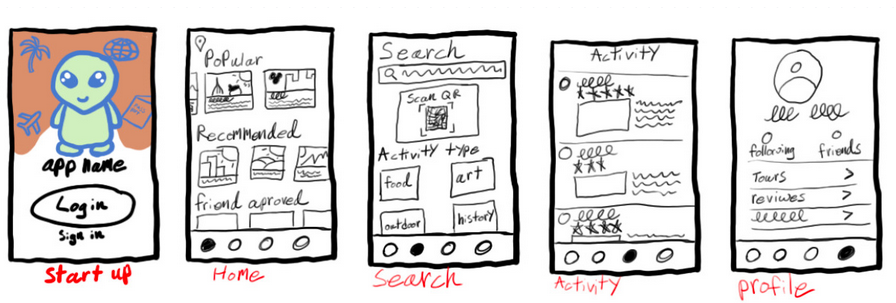 app name
Login
Sign in
Start up
Popular
Recommended
friend aproved
Home
Search
Scan QR
Activity type
food
art
outdoor
history
Search
Activity
Activity
following
friends
Tours
reviwes
profile